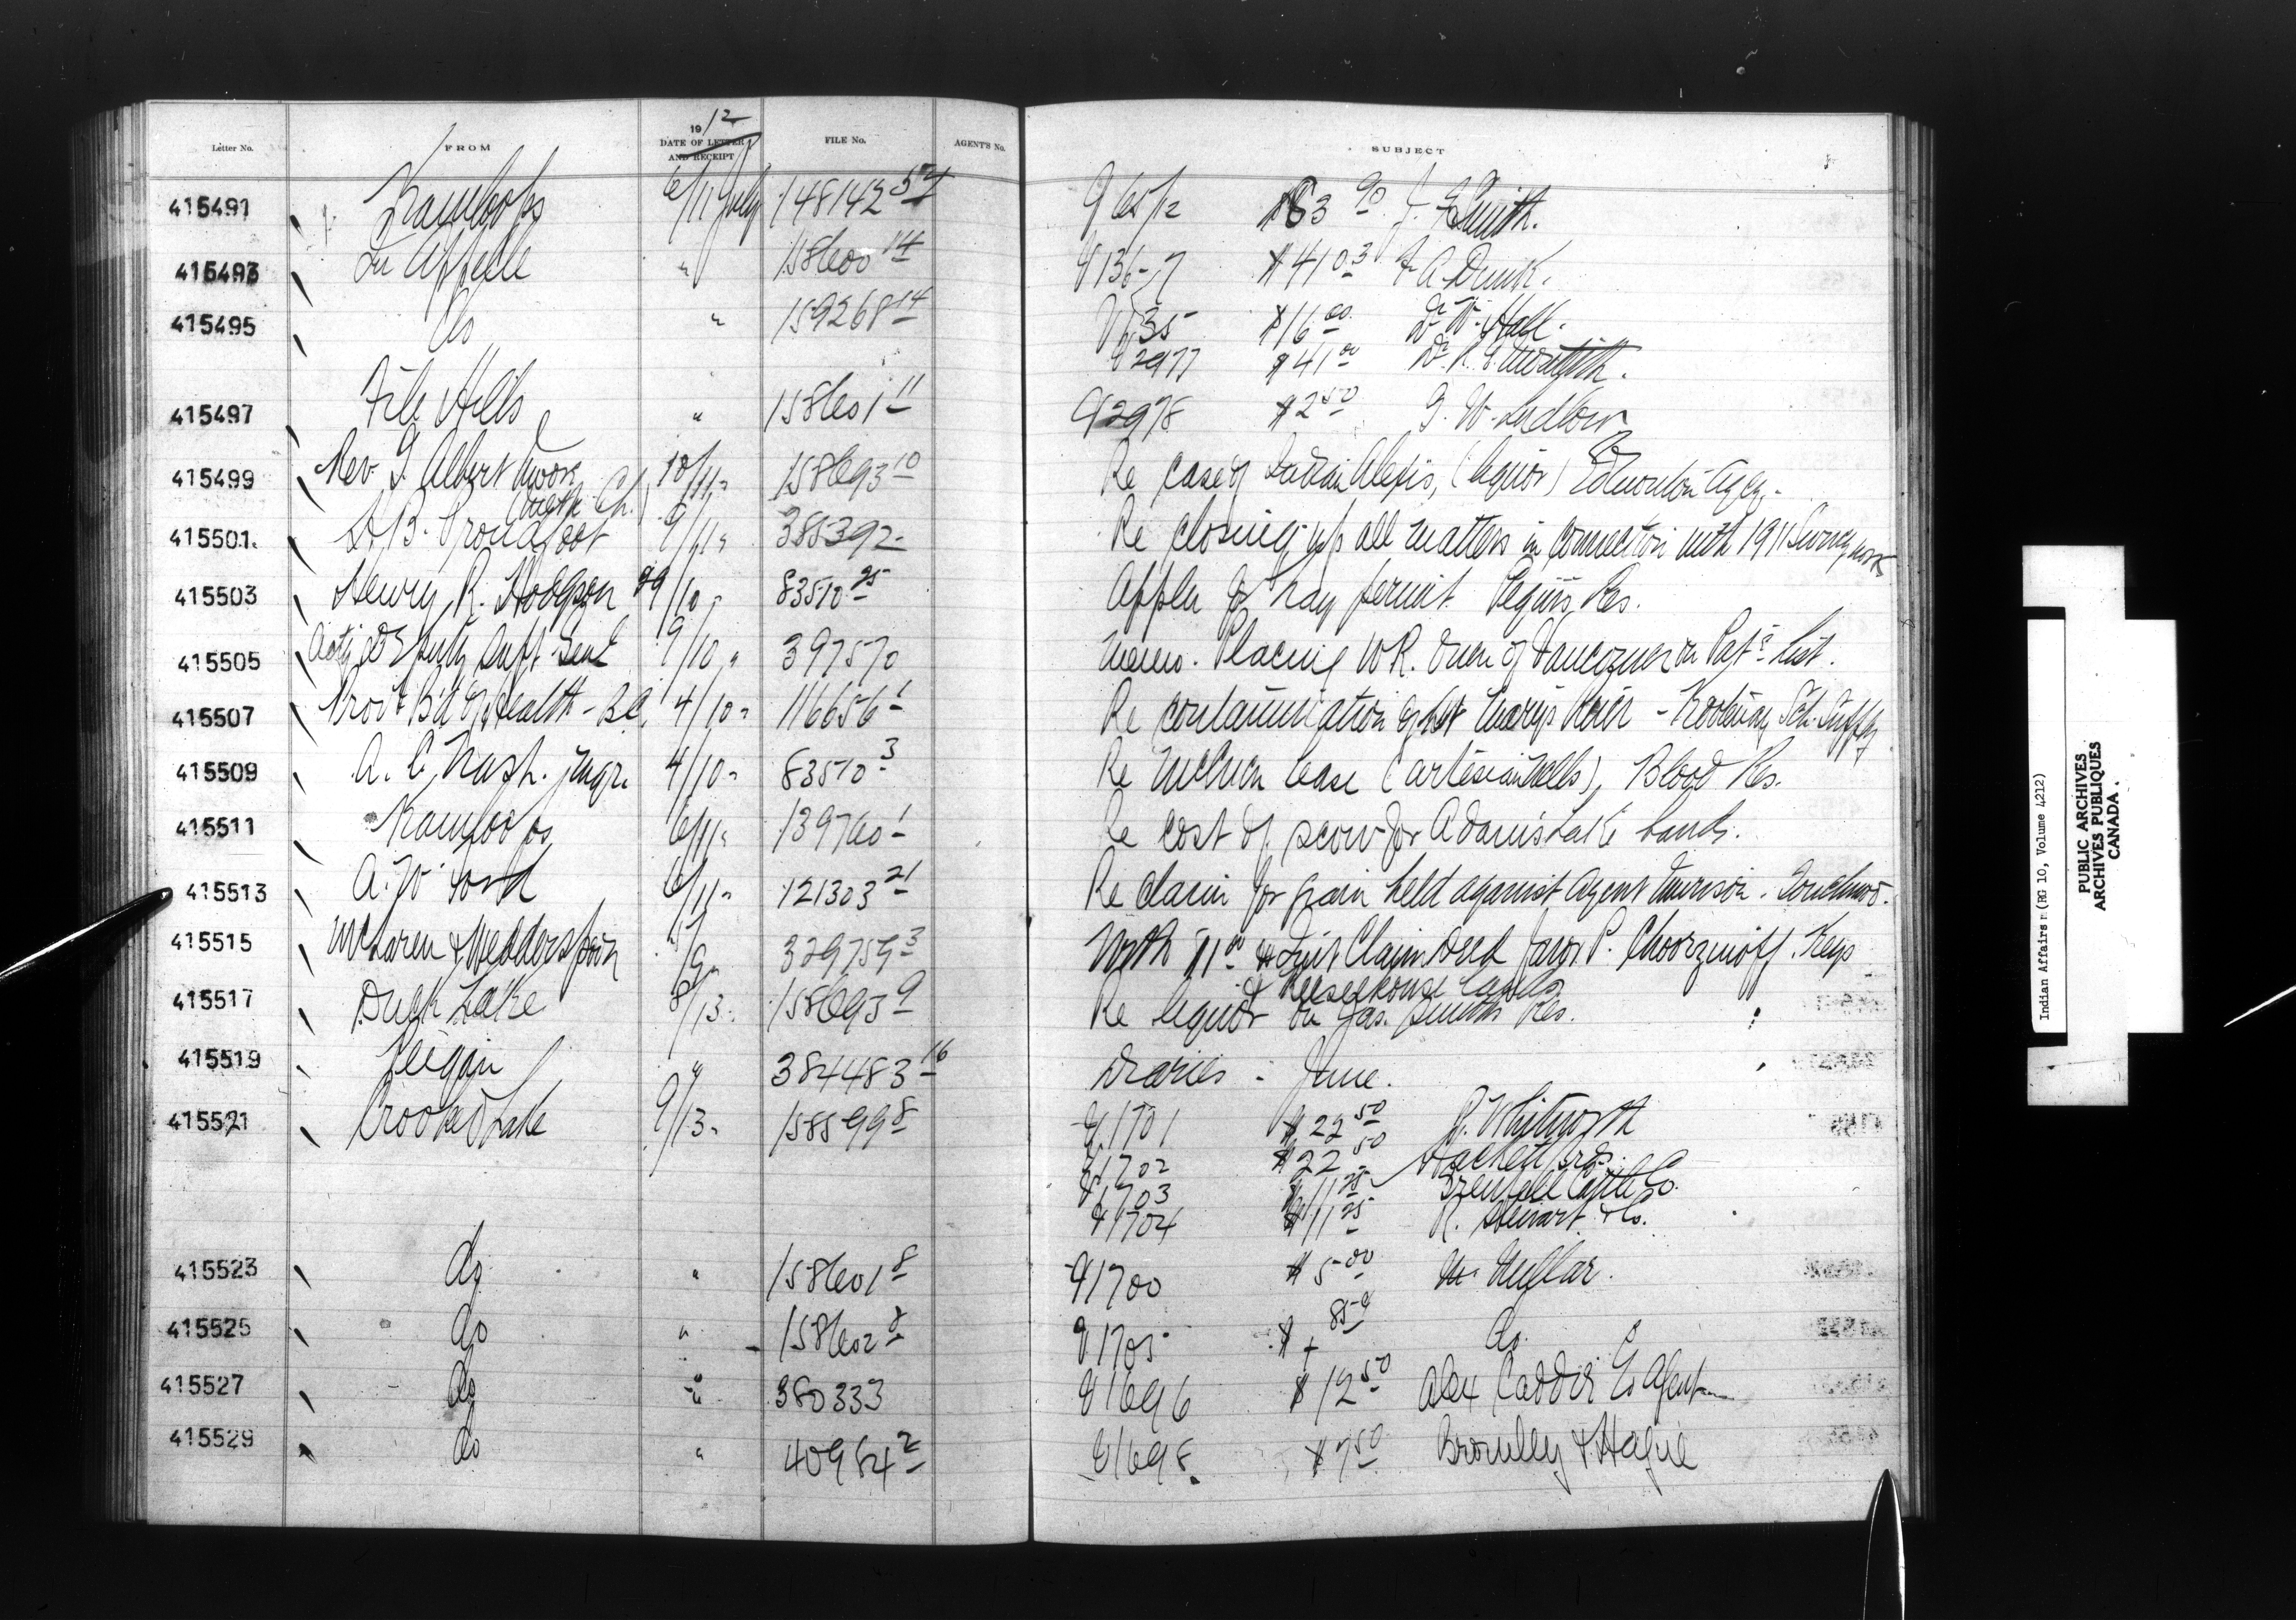 1912
Letter No. FROM DATE OF LETTER AND RECEIPT FILE No. AGENT'S No. SUBJECT
415491 Kamloops 6/11 July 148142 54 965/12 $63 90 J. Smith.
415493 Qu'Appelle " 158600 14 $410 3
415495 do " 159268 14 $16 00 Dr. W. Hall.
2977 $41 00 Dr.
415497 File Hills " 158601 11 2978 $2 50 G. W. Ludlow
415499 Rev. Albert Moore (Meth. Ch.) 10/11 " 158693 10 Re case of Indian Alexis, (liquor) Edmonton Agcy.
415501. Proudfoot 9/11 " 388392 Re closing up all matters in connection with 1911 Survey work
415503 Henry R. Hodgson 29/10 " 83510 25 Appln for hay permit. Peguis Res.
415505 Actg Deputy Supt Genl 9/10 " 397570 Memo. Placing W R. Owen of Vancouver on Pat. List.
415507 Prov'l Bd of Health - B.C. 4/10 " 116656 1 Re contamination of St Marys River - Kootenay Sch. Supply
415509 A. C. Nash. 4/10 " 83510 3 Re lease (artesian wells), Blood Res.
415511 Kamloops 6/11 " 139760 1 Re cost of scow for Adams Lake band.
415513 A. W. Lord 6/11 " 121303 21 Re claim for grain held against Agent Murison. Touchwood.
415515 McLaren & Wedderspoon 5/9 " 329759 3 With $1 00 & Quit Claim Deed favor P. Choorzmoff. Keys
& Keeseekouse lands
415517 Duck Lake 8/13 " 158693 9 Re liquor on Jas. Smiths Res.
415519 Peigan " 384483 16 Diaries - June.
415521 Crooked Lake 9/13 " 158599 8 1701 $22 50 Whitworth
1702 $22 50 Hackett Bros.
1703 $11 25 Grenfell Cattle Co.
1704 $11 25 R. Stewart & Co.
415523 do " 158601 8 1700 $5 00 Millar.
415525 do " 158602 8 1705 $ 85 do.
415527 do " 380333 1696 $12 50 Alex
415529 do " 40984 2 1698 $7 50 Bromley & Hague
Indian Affairs (RG 10, Volume 4212)
PUBLIC ARCHIVES
ARCHIVES PUBLIQUES
CANADA